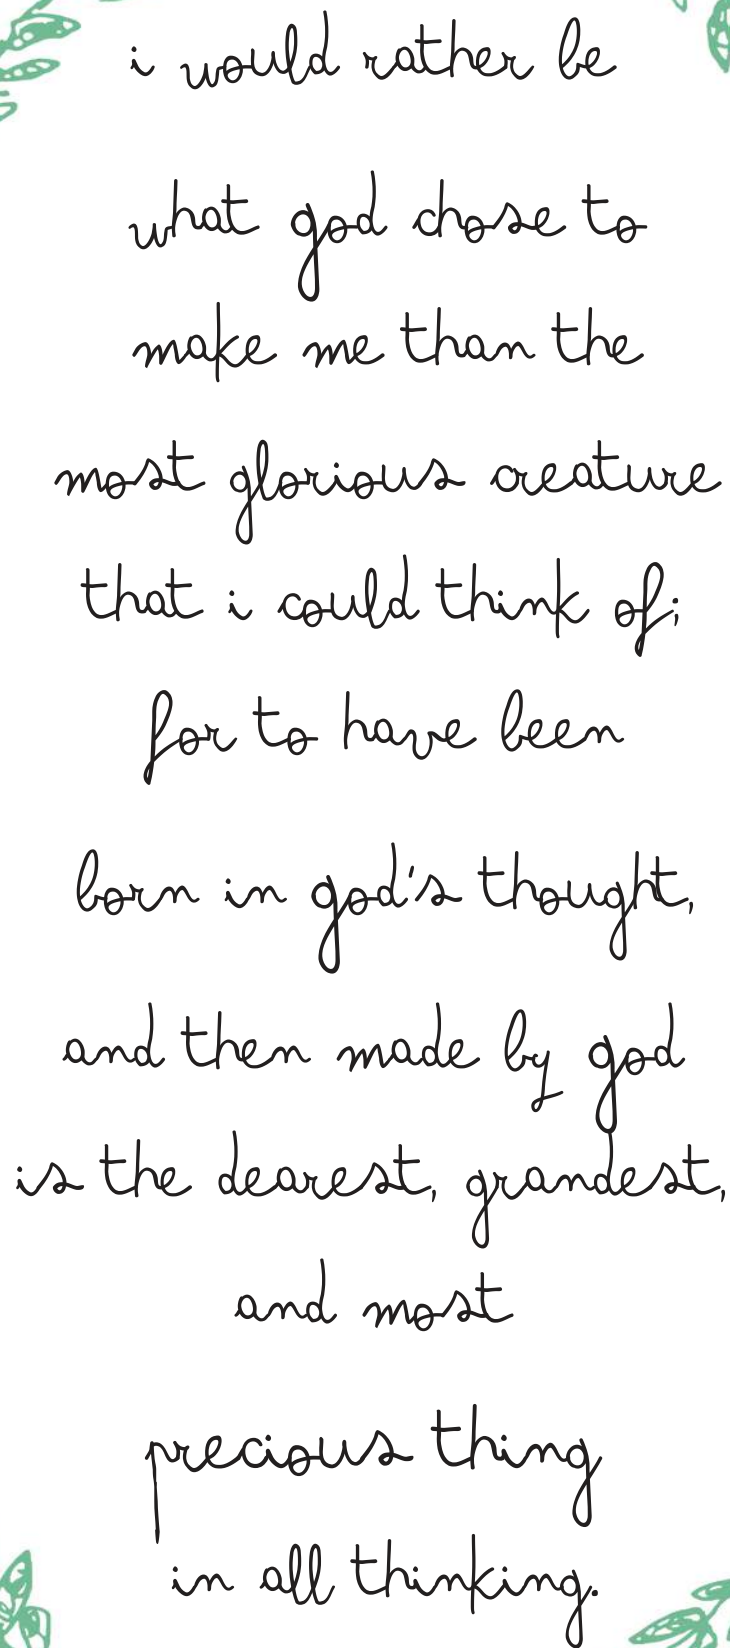 i would rather be
what god chose to
make me than the
most glorious creature
that i could think of;
for to have been
born in god's thought,
and then made by god
is the dearest, grandest,
and most
precious thing
in all thinking.